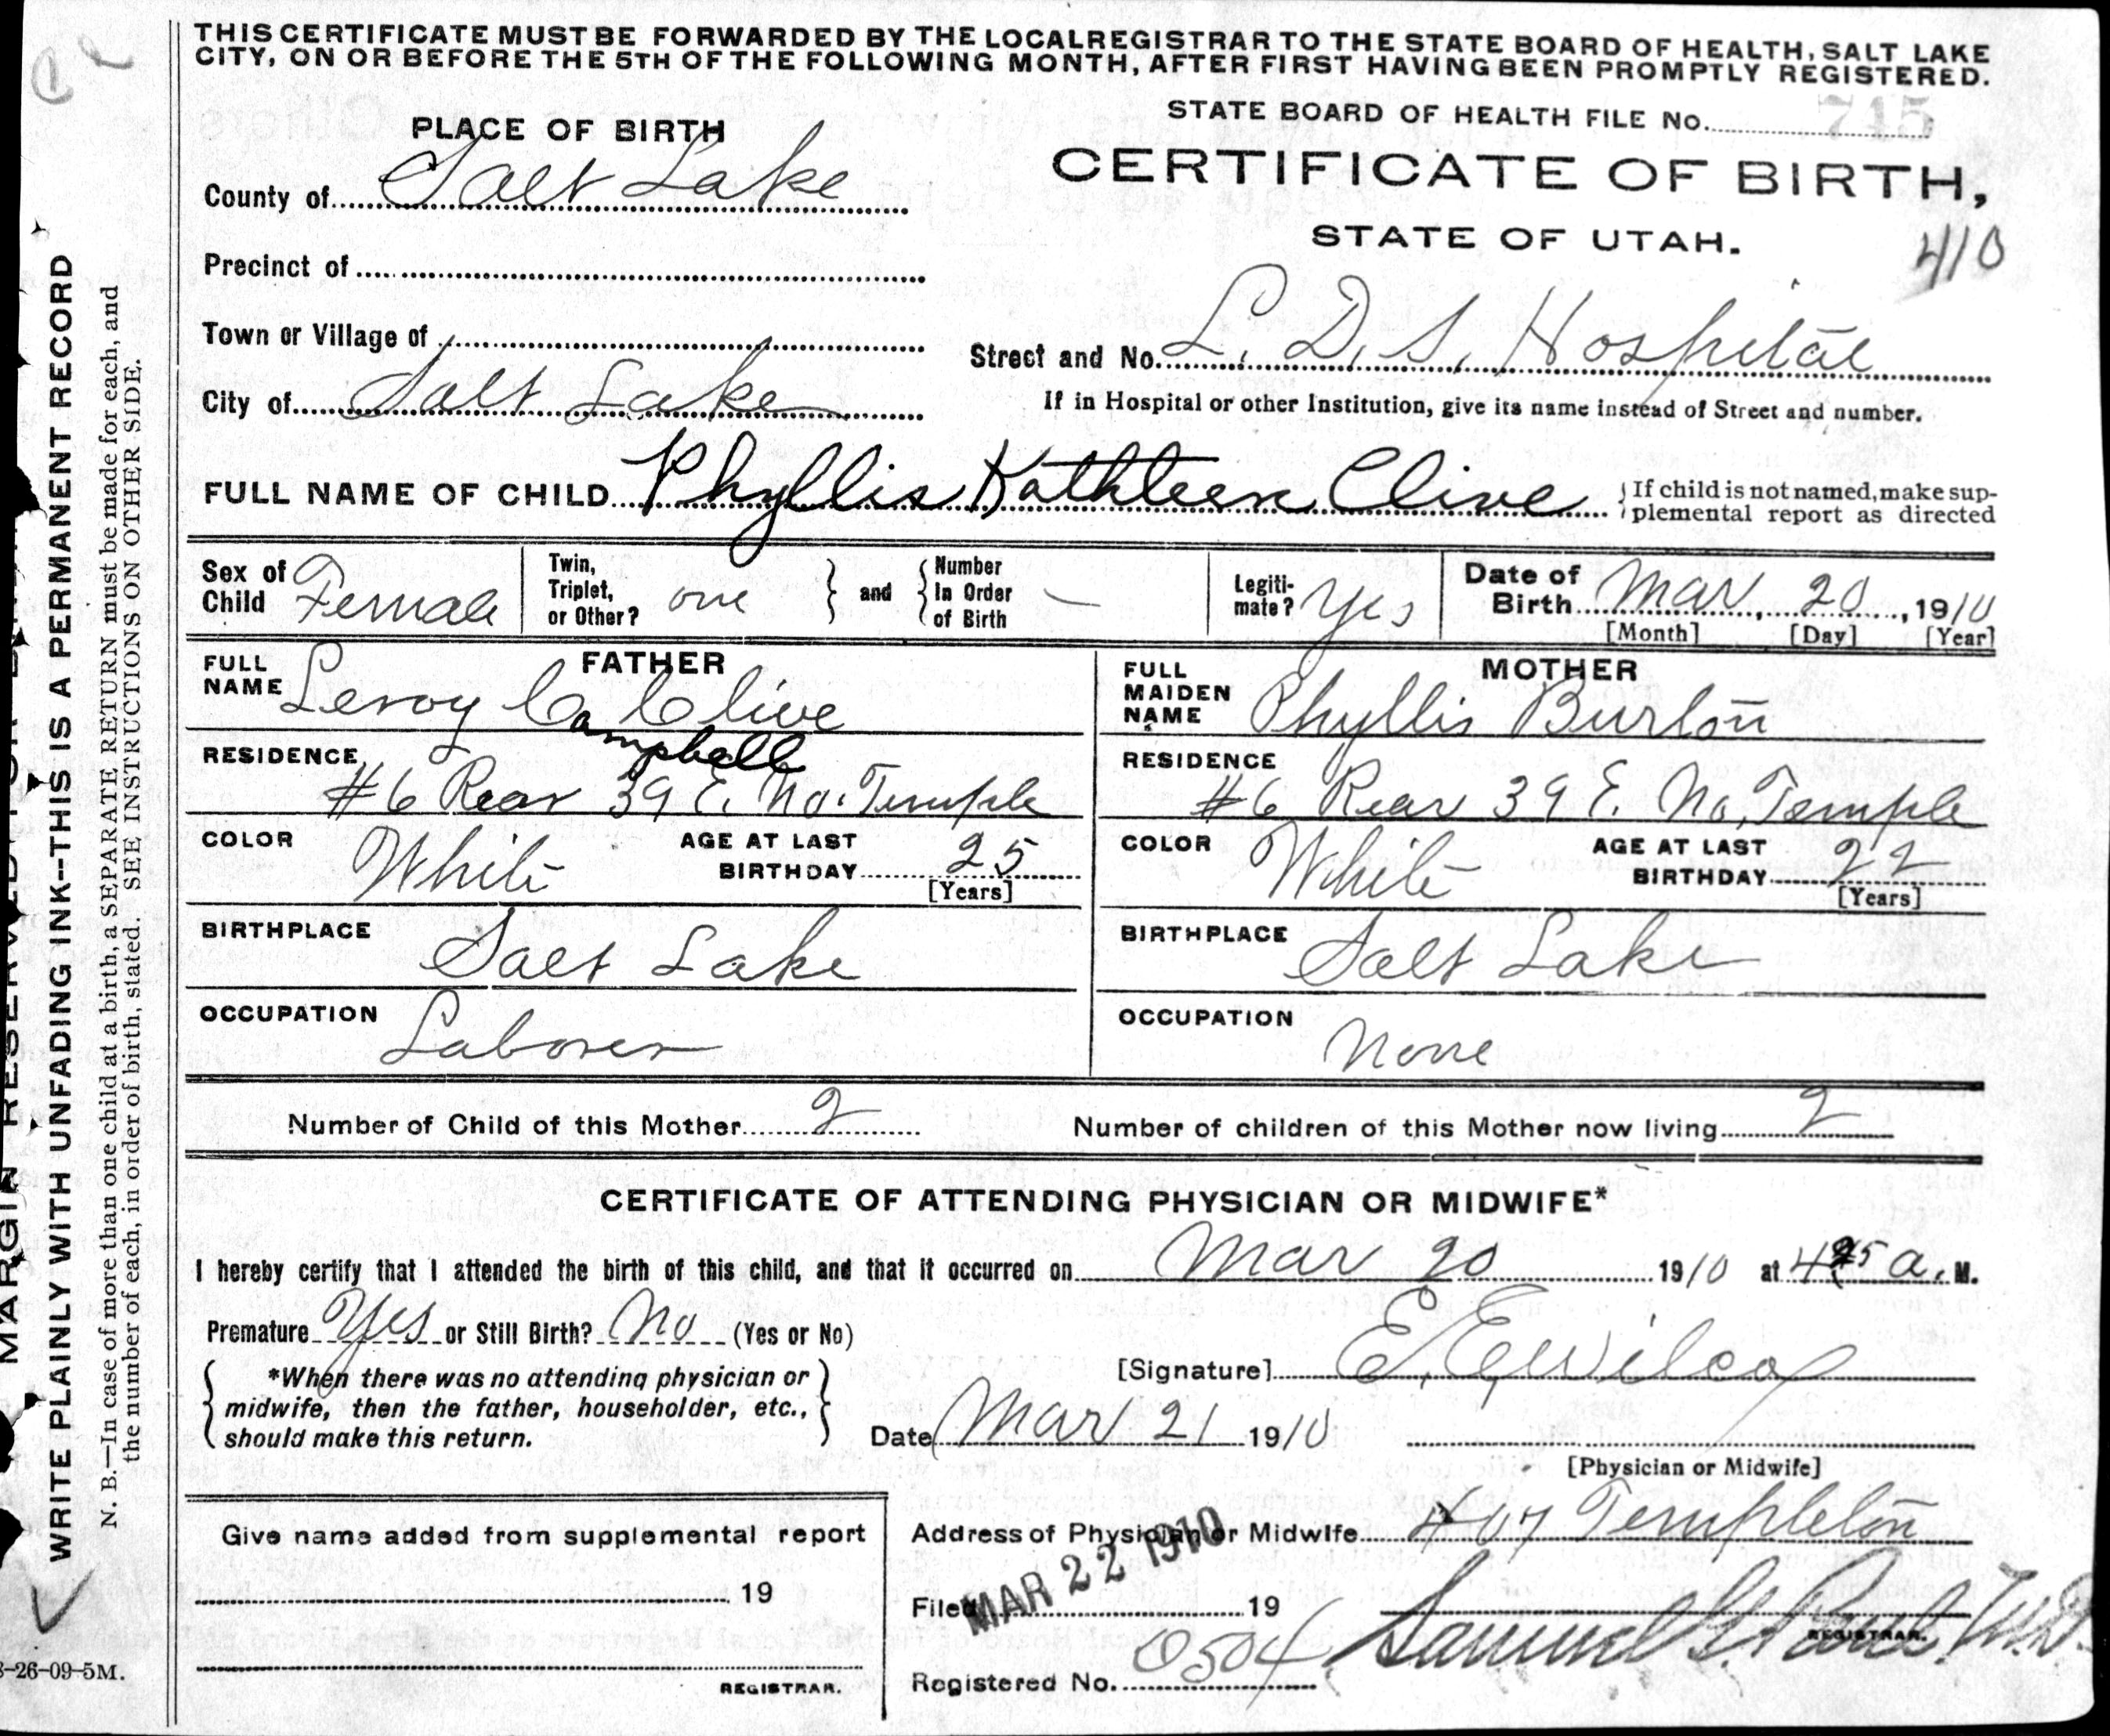 THIS CERTIFICATE MUST BE FORWARDED BY THE LOCAL REGISTRAR TO THE STATE BOARD OF HEALTH, SALT LAKE
CITY, ON OR BEFORE THE 5TH OF THE FOLLOWING MONTH, AFTER FIRST HAVING BEEN PROMPTLY REGISTERED.
STATE BOARD OF HEALTH FILE No. 745
PLACE OF BIRTH
CERTIFICATE OF BIRTH,
County of Salt Lake
STATE OF UTAH.
410
Precinct of
Town or Village of
Street and No. L. D. S. Hospital
City of Salt Lake
If in Hospital or other Institution, give its name instead of Street and number.
FULL NAME OF CHILD Phyllis Kathleen Clive
If child is not named, make sup-
plemental report as directed
Sex of Child Female
Twin, Triplet, or Other? one and Number In Order of Birth —
Legiti-mate? Yes
Date of Birth Mar, 20, 1910
[Month] [Day] [Year]
FATHER
FULL NAME Leroy C. Clive
Campbell
RESIDENCE #6 Rear 39 E. No. Temple
COLOR White AGE AT LAST BIRTHDAY 25
[Years]
BIRTHPLACE Salt Lake
OCCUPATION Laborer
MOTHER
FULL MAIDEN NAME Phyllis Burton
RESIDENCE #6 Rear 39 E. No. Temple
COLOR White AGE AT LAST BIRTHDAY 22
[Years]
BIRTHPLACE Salt Lake
OCCUPATION None
Number of Child of this Mother 2 Number of children of this Mother now living 2
CERTIFICATE OF ATTENDING PHYSICIAN OR MIDWIFE*
I hereby certify that I attended the birth of this child, and that it occurred on Mar 20 1910 at 425 a. M.
Premature Yes or Still Birth? No (Yes or No)
*When there was no attending physician or
midwife, then the father, householder, etc.,
should make this return.
[Signature] E. E. Wilcox
Date Mar 21 1910
[Physician or Midwife]
Give name added from supplemental report
19
REGISTRAR.
Address of Physician or Midwife 407 Templeton
MAR 22 1910
Filed 19
Samuel G. Paul M.D.
REGISTRAR.
Registered No. 0504
MARGIN RESERVED
WRITE PLAINLY WITH UNFADING INK--THIS IS A PERMANENT RECORD
N. B.—In case of more than one child at a birth, a SEPARATE RETURN must be made for each, and
the number of each, in order of birth, stated. SEE INSTRUCTIONS ON OTHER SIDE.
-26-09-5M.